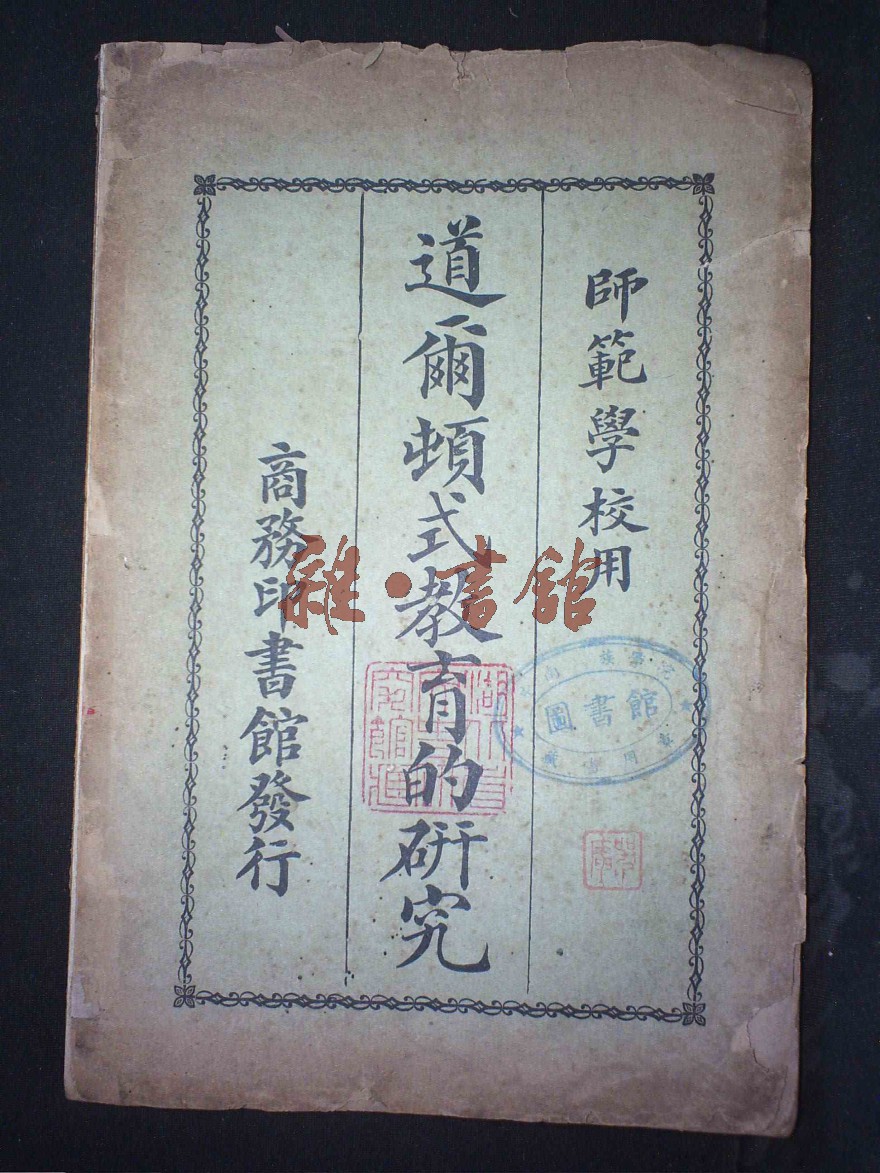 師範學校用
道爾頓式教育的研究
商務印書館發行
雜·書館
圖書館